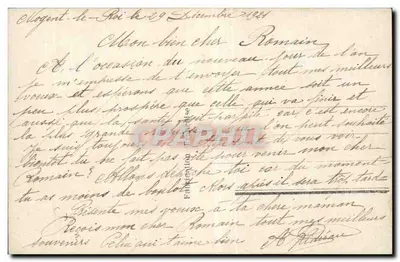 Nogent-le-Roi le 29 Décembre 1921
Mon bien cher Romain
A l'occasion du nouveau jour de l'an
je m'empresse de t'envoyer tout mes meilleurs
voeux et espérons que cette année soit un
peu plus prospère que celle qui va finir et
aussi que la santé soit parfaite car c'est encore
la plus grande l'on peut souhaité
Je suis toujours de vous voir
Bientôt tu ne fait pas vite pour venir mon cher
Romain Allons dépêche toi car du moment
tu as moins de boulot Nous après il sera trop tard
Présente mes voeux à ta chère maman
Reçois mon cher Romain tout mes meilleurs
souvenirs Celui qui t'aime bien
CPAPHIL